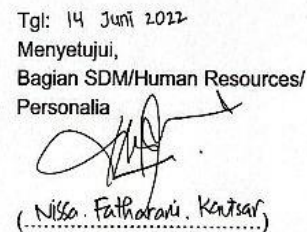 Tgl: 14 Juni 2022
Menyetujui,
Bagian SDM/Human Resources/
Personalia
(Nissa Fatharani Kautsar)